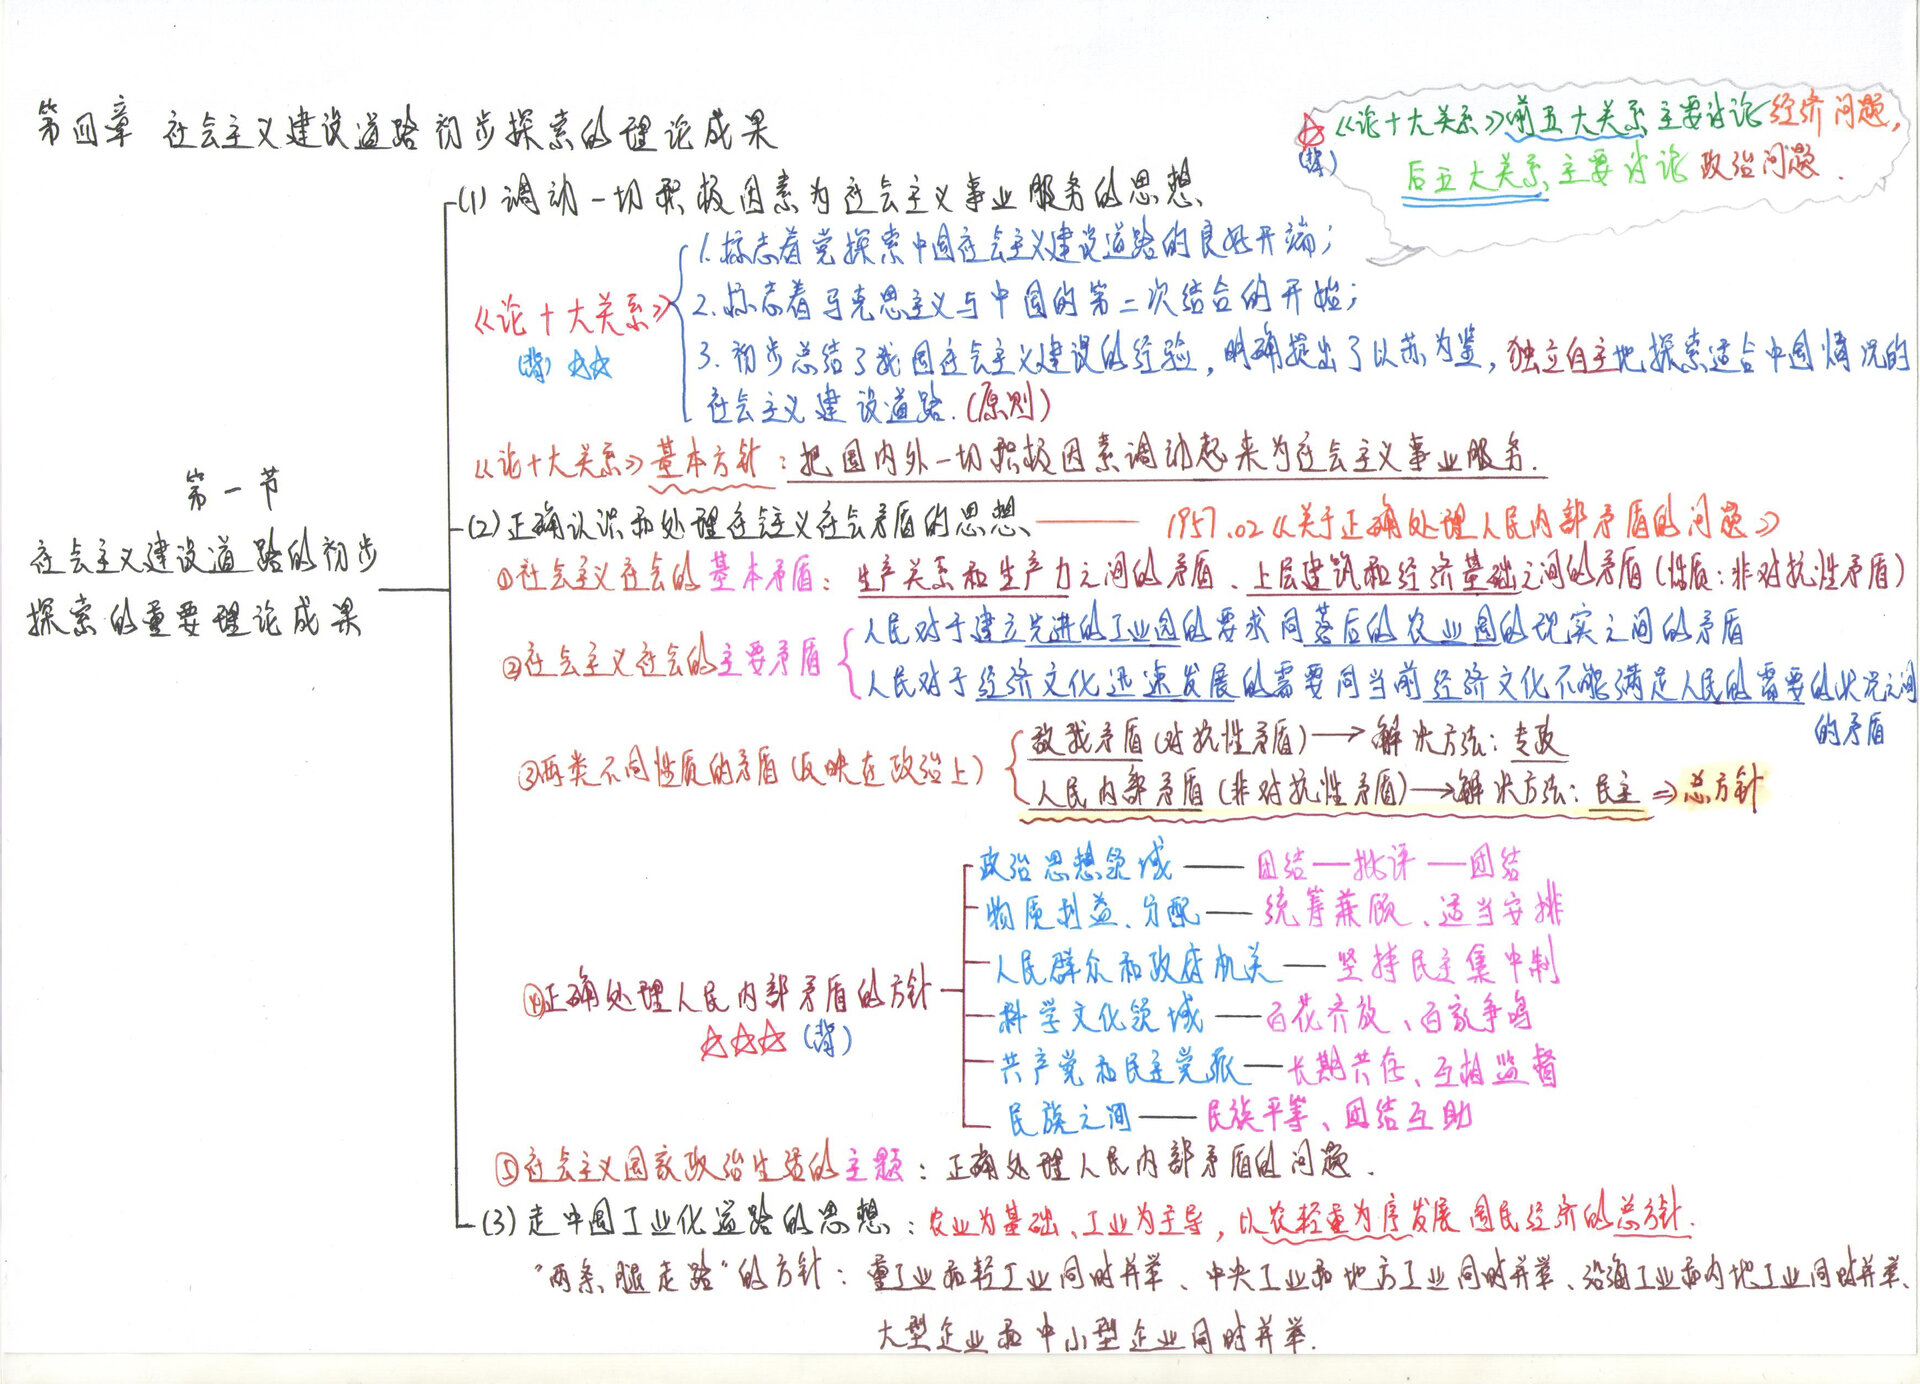 第四章 社会主义建设道路初步探索的理论成果
☆《论十大关系》前五大关系主要讨论经济问题,
(背)
后五大关系主要讨论政治问题.
(1)调动一切积极因素为社会主义事业服务的思想
《论十大关系》
(背)☆☆
1.标志着党探索中国社会主义建设道路的良好开端;
2.标志着马克思主义与中国的第二次结合的开始;
3.初步总结了我国社会主义建设的经验,明确提出了以苏为鉴,独立自主地探索适合中国情况的
社会主义建设道路.(原则)
《论十大关系》基本方针:把国内外一切积极因素调动起来为社会主义事业服务.
第一节
社会主义建设道路的初步
探索的重要理论成果
(2)正确认识和处理社会主义社会矛盾的思想 —— 1957.02《关于正确处理人民内部矛盾的问题》
①社会主义社会的基本矛盾:生产关系和生产力之间的矛盾、上层建筑和经济基础之间的矛盾(性质:非对抗性矛盾)
②社会主义社会的主要矛盾
人民对于建立先进的工业国的要求同落后的农业国的现实之间的矛盾
人民对于经济文化迅速发展的需要同当前经济文化不能满足人民的需要的状况之间
的矛盾
③两类不同性质的矛盾(反映在政治上)
敌我矛盾(对抗性矛盾)→解决方法:专政
人民内部矛盾(非对抗性矛盾)→解决方法:民主⇒总方针
④正确处理人民内部矛盾的方针
☆☆☆(背)
政治思想领域——团结—批评—团结
物质利益、分配——统筹兼顾、适当安排
人民群众和政府机关——坚持民主集中制
科学文化领域——百花齐放、百家争鸣
共产党和民主党派——长期共存、互相监督
民族之间——民族平等、团结互助
⑤社会主义国家政治生活的主题:正确处理人民内部矛盾的问题.
(3)走中国工业化道路的思想:农业为基础、工业为主导,以农轻重为序发展国民经济的总方针.
"两条腿走路"的方针:重工业和轻工业同时并举、中央工业和地方工业同时并举、沿海工业和内地工业同时并举、
大型企业和中小型企业同时并举.